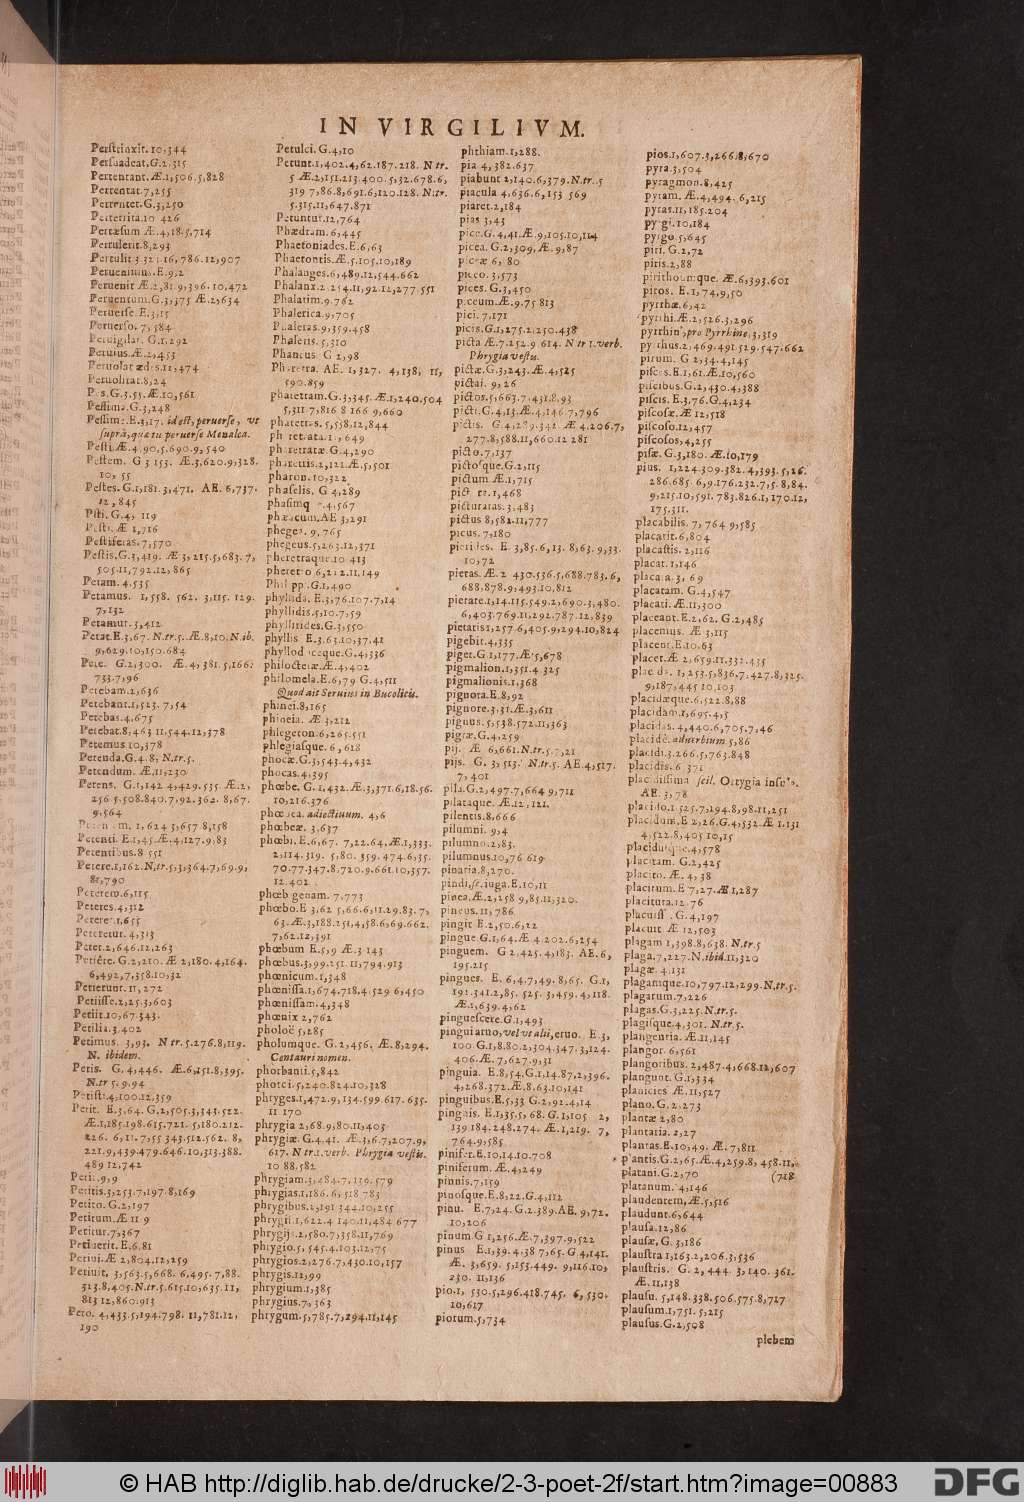 IN VIRGILIVM.
Perstrinxit.10,344
Persuadeat.G.2.315
Pertentant.Æ.1,506.5,828
Pertentat.7,255
Pertentet.G.3,250
Perterrita.10 426
Pertæsum Æ.4,18.5,714
Pertulerit.8,293
786.12,907
Peruenimus.E.9,2
Peruenit Æ.2,81.9,396.10,472
Peruentum.G.3,375 Æ.2,634
Peruerse.E.3,15
Peruerso.7,584
Peruigilat.G.1,292
Peruius.Æ.2,453
11,474
Peruolitat.8,24
Pes.G.3,55.Æ.10,561
Pessima.G.3,248
Pessime.E.3,17. id est, peruerse, vt
suprà, quæ tu peruerse Menalca.
Pesti.Æ.4.90,5.690.9,540
Pestem. G 3 153. Æ.3,620.9,328.
10,55
Pestes.G.1,181.3,471. AE.6,737.
12,845
Pesti.Æ 1,716
Pestiferas.7,570
Pestis.G.3,419. Æ 3,215.5,683.7,
505.11,792.12,865
Petam.4.535
Petamus. 1,558. 562. 3,115. 129.
7,132
Petamur.3,412
Petat.E.3,67. N.tr.5. Æ.8,10.N.ib.
9,629.10,150.684
Pete. G.2,300. Æ.4,381.5,166.
733.7,96
Petebam.2,636
Petebant.1,523.7,54
Petebas.4,675
Petebat.8,463 11,544.12,378
Petemus.10,378
Petenda.G.4.8, N.tr.5.
Petendum. Æ.11,230
Petens. G.1,142 4,429.535 Æ.2,
256 5.508.840.7,92.362. 8,67.
9,564
Petenti. E.1,45.Æ.4,127.9,83
Petentibus.8 551
Petere.1,162.N.tr.5,3,364.7,69.9,
81,790
Peterem.6,115
Peteres.4,312
Peteret.1,655
Peteretur.4,313
Petet.2,646.12,263
Petiere.G.2,210.Æ 2,180.4,164.
6,492,7,358.10,32
Petierunt.11,272
Petiisse.2,25.3,603
Petiit.10,67.343.
Petilia.3.402
Petimus. 3,93. N tr.5.276.8,119.
N. ibidem.
Petis. G. 4,446. Æ.6,151.8,395.
N.tr 5. 9.94
Petisti.4,100.12,359
Petit. E.3,64. G.2,505.3,343.522.
Æ.1,185.198.615.721. 5,180.212.
226. 6,11.7,55 343.512.562. 8,
221.9,439.479.646.10,313.388.
489 12,742
Petiti.9,9
Petitis.3,253.7,197.8,169
Petito.G.2,197
Petitum.Æ 11 9
Petitur.7,367
Petiuerit.E.6.81
Petiui.Æ 2,804.12,259
Petiuit. 3,563.5,668. 6,495.7,88.
513.8,405.N.tr.5.615.10,635.11,
813 12,860.913
Peto. 4,433.5,194.798. 11,781.12,
190
Petulci.G.4,10
Petunt.1,402.4,62.187.218. N tr.
5 Æ.2,151.213.400.5,32.678.6,
319 7,86.8,691.6,120.128. N.tr.
5.315.11,647.871
Petuntur.12,764
Phædram.6,445
Phaetoniades.E.6,63
Phaetontis.Æ.5.105.10,189
Phalanges.6,489.12,544.662
Phalanx.2.254.11,92.12,277 551
Phalarim.9.762
Phalerica.9,705
Phaleras.9,359.458
Phaleris.5,310
Phanæus G 2,98
Pharetra. AE. 1,327. 4,138, 11,
590.859
pharetram.G.3,345. Æ.1,240.504
5,311 7,816 8 166 9,660
pharetras. 5,558.12,844
pharetratæ.G.4,290
pharetris.2,121.Æ.5,501
pharon.10,322
phaselis. G 4,289
phæacum.AE 3,291
phegea. 9,765
phegeus.5,263.12,371
pheretraque.10 413
pheretro 6,212.11,149
Philippi.G.1,490
phyllida. E.3,76.107.7,14
phyllidis.5,10.7,59
phyllirides.G.3,550
phyllis E.3.63.10,37.41
G.4,336
philoctetæ.Æ.4,402
philomela.E.6,79 G.4,511
Quod ait Seruius in Bucolicis.
phinei.8,165
phineia. Æ 3,212
phlegeton.6,265.551
phlegiasque.6,618
phocæ.G.3,543.4,432
phocas.4,395
phœbe. G.1,432.Æ.3,371.6,18.56.
10,216.376
phœbea. adiectiuum. 4,6
phœbeæ. 3,637
phœbi. E.6,67. 7,22.64. Æ.1,333.
2,114.319. 5,80. 359. 474.6,35.
70.77.347.8,720.9.661.10,357.
12.402
phœbigenam.7,773
phœbo.E 3,62 5,66.6,11.29.83.7,
63. Æ.3,188.251,4,58.6,69.662.
7,62.12,391
phœbum E.5,9 Æ.3 143
phœbus.3,99.251.11,794.913
phœnicum.1,348
phœnissa.1,674.718.4 529 6,450
phœnissam.4,348
phœnix 2,762
pholoë 5,285
pholumque. G.2,456, Æ.8,294.
Centauri nomen.
phorbanti.5,842
phorci.5,240.824.10,328
phryges.1,472.9,134.599.617.635.
11 170
phrygia 2,68.9,80.11,403
phrygiæ. G.4.41. Æ.3,6.7,207.9,
617. N tr.1.verb. Phrygia vestis.
10 88.582
phrygiam.3,484.7,139.579
phrygias.1,186.6,518 783
phrygibus.2,191 344.10,255
phrygij.1,622.4 140.11,484 677
phrygij.2,580.7,358.11,769
phrygio.5,545.4.103.12,75
phrygios.2,276.7,430.10,157
phrygis.12,99
phrygium.1,385
phrygius.7,363
phrygum.5,785.7,294.11,145
phthiam.1,288.
pia 4,382.637
piabunt 2,140.6,379.N.tr.5
piacula 4,636.6,153 569
piaret.2,184
pias 3,45
pice.G.4,41.Æ.9,105.10,114
picea. G.2,309, Æ.9,87
piceo.3,573
pices.G.3,450
piceum.Æ.9.75 813
pici.7,171
picis.G.1,275.2,250.438
picta Æ.7.252.9 614. N tr 1.verb.
Phrygia vestis.
pictæ.G.3,243. Æ.4,525
pictai. 9,26
pictos.5,663.7,431.8,93
picti.G.4,13.Æ.4,146.7,796
pictis. G.4,289.342 Æ 4.206.7,
277.8,588.11,660.12 281
picto.7,137
pictosque.G.2,115
pictum Æ.1,715
1,468
picturatas.3,483
pictus 8,582.11,777
picus.7,180
pierides. E. 3,85.6,13. 8,63.9,33.
10,72
pietas.Æ.2 430.536.5,688.783.6,
688,878.9,493.10,812
pietate.1,14.115.549.2,690.3,480.
6,403.769.11,292.787.12,839
pietatis 1,257.6,405.9,294.10,824
pigebit.4,335
piget.G 1,177.Æ.5,678
pigmalion.1,351.4 325
pigmalionis.1,368
pignora.E.8,92
pignore.3,31.Æ.3,611
pignus.5,538.572.11,363
pigræ.G.4,259
pij. Æ 6,661.N.tr.5.7,21
pijs. G. 3,513. N.tr.5. AE.4,517.
7,401
pila.G.2,497.7,664 9,711
pilataque.Æ.12,121.
pilentis.8,666
pilumni. 9,4
pilumno.2,83.
pilumnus.10,76 619
pinaria.8,270.
E.10,11
pinea.Æ.2,258 9,85.11,320.
pineus.11,786
pingit E.2,50.6,22
pingue G.1,64.Æ 4.202.6,254
pinguem. G 2,425.4,183. AE.6,
195.215
pingues. E. 6,4.7,49.8,65. G.1,
192.341.2,85. 525. 3,459.4,118.
Æ.1,639.4,62
pinguescere.G.1,493
pingui aruo, vel vt alij, eruo. E.3,
100.G.1,8.80.2,304.347.3,124.
406.Æ.7,627.9,31
pinguia. E.8,54.G.1,14.87,2,396.
4,268.372.Æ.8.63.10,141
pinguibus.E.5,33 G.2,92.4,14
pinguis. E.1,35.5,68. G.1,105 2,
139.184.248.274. Æ.1,219. 7,
764.9,585
pinifer.E.10.14.10.708
piniferum. Æ.4,249
pinnis.7,159
pinosque.E.8,22.G.4,112
pinu. E.7,24.G.2.389.AE.9,72.
10,206
pinum G 1,256.Æ.7,397.9,522
pinus E.1,39.4.38 7,65. G 4,141.
Æ. 3,659. 5,153.449. 9,116.10,
230. 11,136
pio.1, 530.5,296.418.745. 6,530.
10,617
piorum.5,734
pios.1,607.3,266.8,670
pyra.3,504
pyragmon.8,425
pyram. Æ.4,494. 6,215
pyras.11,185.204
pyrgi.10,184
pyrgo.5,645
piri. G.2,72
piris.2,88
pirithoumque. Æ.6,393.601
piros. E.1,74,9,50
pyrrhæ.6,42
pyrrhi.Æ.2,526.3,296
pyrrhin', pro Pyrrhine.3,319
pyrrhus.2,469.491.529.547.662
pirum. G 2,34.4,145
pisces.E.1,61.Æ.10,560
piscibus.G.2,430.4,388
piscis.E.3,76.G.4,234
piscosæ.Æ 12,518
piscoso.12,457
piscosos,4,255
pisæ.G.3,180. Æ.10,179
pius. 1,224.309.382.4,393.5,26.
286.685 6,9.176.232.7,5.8,84.
9,215.10,591.783.826.1,170.12,
175.311.
placabilis. 7,764 9,585
placarit.6,804
placastis.2,116
placat.1,146
placata.3,69
placatam. G.4,547
placati. Æ.11,300
placeant.E.2,62. G.2,485
placemus. Æ 3,115
placent.E.10.63
placet.Æ 2,659.11.332.435
1,253.5,836.7.427.8,325.
9,187,445 10,103
placidæque.6,522.8,88
placidam.1,695.4,5
placidas. 4,440.6,705.7,46
placidè. aduerbium 5,86
placidi.3.266.5,763.848
placidis.6 371
placidissima scil. Ortygia insula.
AE.3,78
placido.1 525.7,194.8,98.11,251
placidum.E 2,26.G.4,532.Æ 1.131
4,522.8,405 10,15
placidusque.4,578
placitam. G.2,425
placito. Æ.4,38
placitum.E 7,27. Æ 1,287
placitura.12.76
G.4,197
placuit Æ 12,503
plagam 1,398.8,638. N.tr.5
plaga.7,227.N.ibid.11,320
plagæ 4.131
plagamque.10,797.12,299.N.tr.5.
plagarum.7,226
plagas.G.3,225.N.tr.5.
plagisque.4,301. N.tr.5.
plangentia. Æ.11,145
plangor 6,561
plangoribus. 2,487.4,668.12,607
plangunt.G.1,334
planicies Æ.11,527
plano. G.2.273
plantæ 2,80
plantaria.2,27
plantas.E.10,49. Æ.7,811
plantis.G.2,65.Æ.4,259.8, 458.11,
platani.G.2,70 (718
platanum. 4,146
plaudentem, Æ.5,516
plaudunt.6,644
plausa.12,86
plausæ, G.3,186
plaustra 1,163.2,206.3,536
plaustris. G.2, 444. 3,140. 361.
Æ.11,138
plausu. 5,148.338.506.575.8,717
plausum.1,751. 5,215
plausus.G.2,508
plebem
© HAB http://diglib.hab.de/drucke/2-3-poet-2f/start.htm?image=00883
DFG